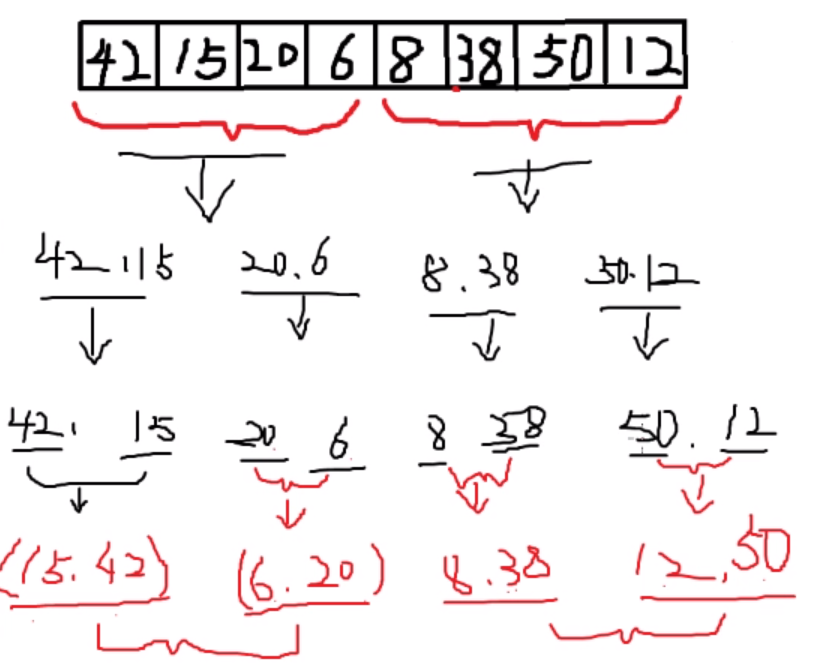 42 15 20 6 8 38 50 12
42.15 20.6 8.38 50.12
42. 15 20 6 8 38 50. 12
(15.42) (6.20) 8.38 12.50